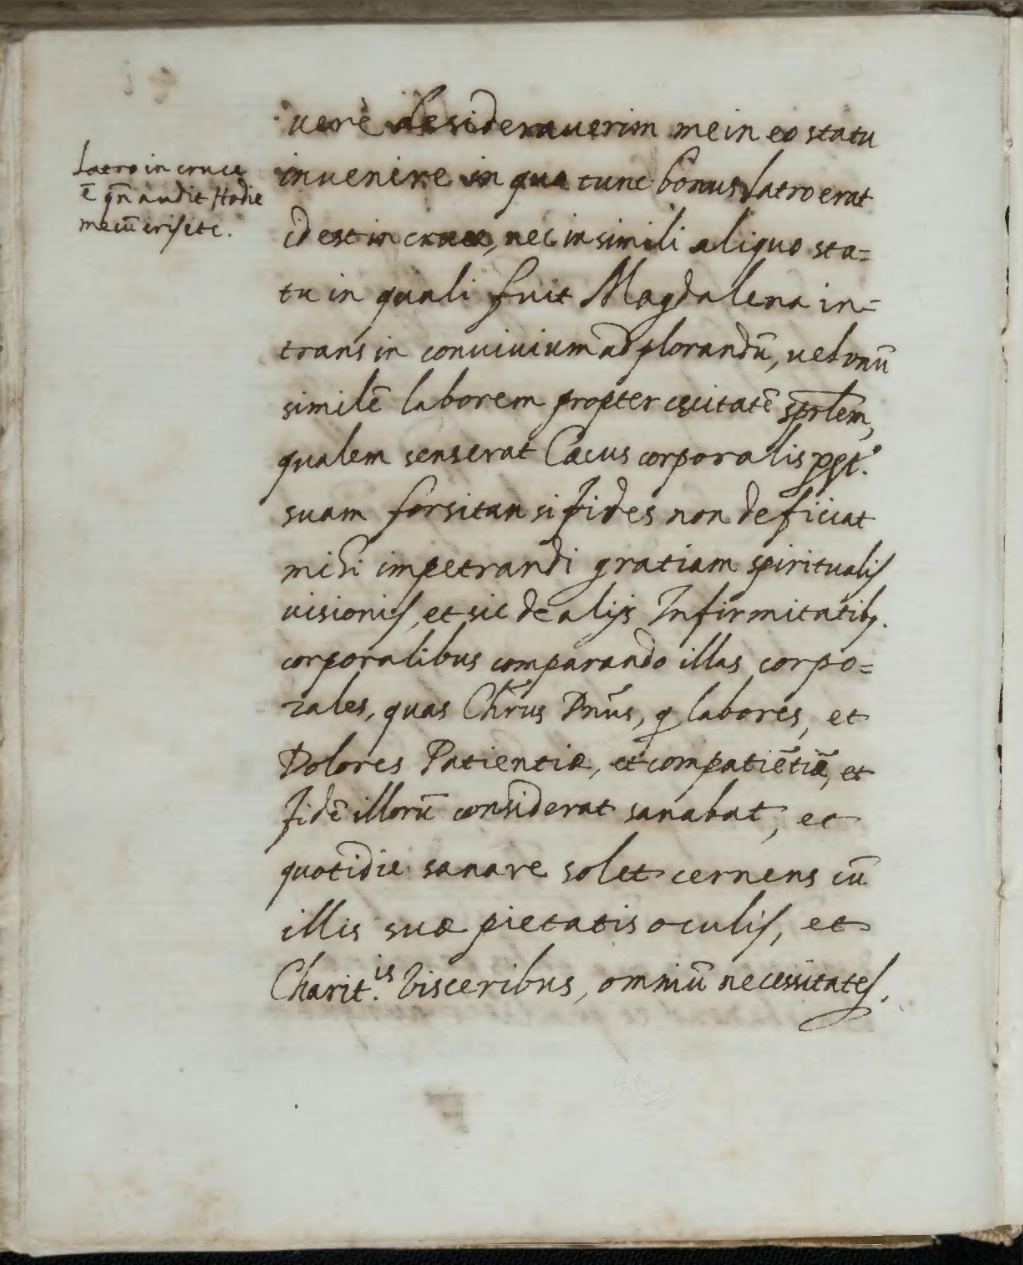 Latro in cruce
ē qn̄ audit Hodie
mecū eris etc.
verè desideraverim me in eo statu
invenire in quo tunc bonus latro erat
id est in cruce, nec in simili aliquo sta=
tu in quali fuit Magdalena in=
trans in convivium ad plorandū, vel unū
similē laborem propter cęcitatē sp̄rlem,
qualem senserat Cæcus corporalis
suam forsitan si fides non deficiat
mihi impetrandi gratiam spiritualis
visionis, et sic de alijs Infirmitatib.
corporalibus comparando illas corpo=
rales, quas Chr̄us Dn̄us, q labores, et
Dolores Patientiæ, et compatiētiæ, et
fidē illorū considerat sanabat, et
quotidie sanare solet cernens cū
illis suæ pietatis oculis, et
Charit.is Visceribus, omniū necessitates.